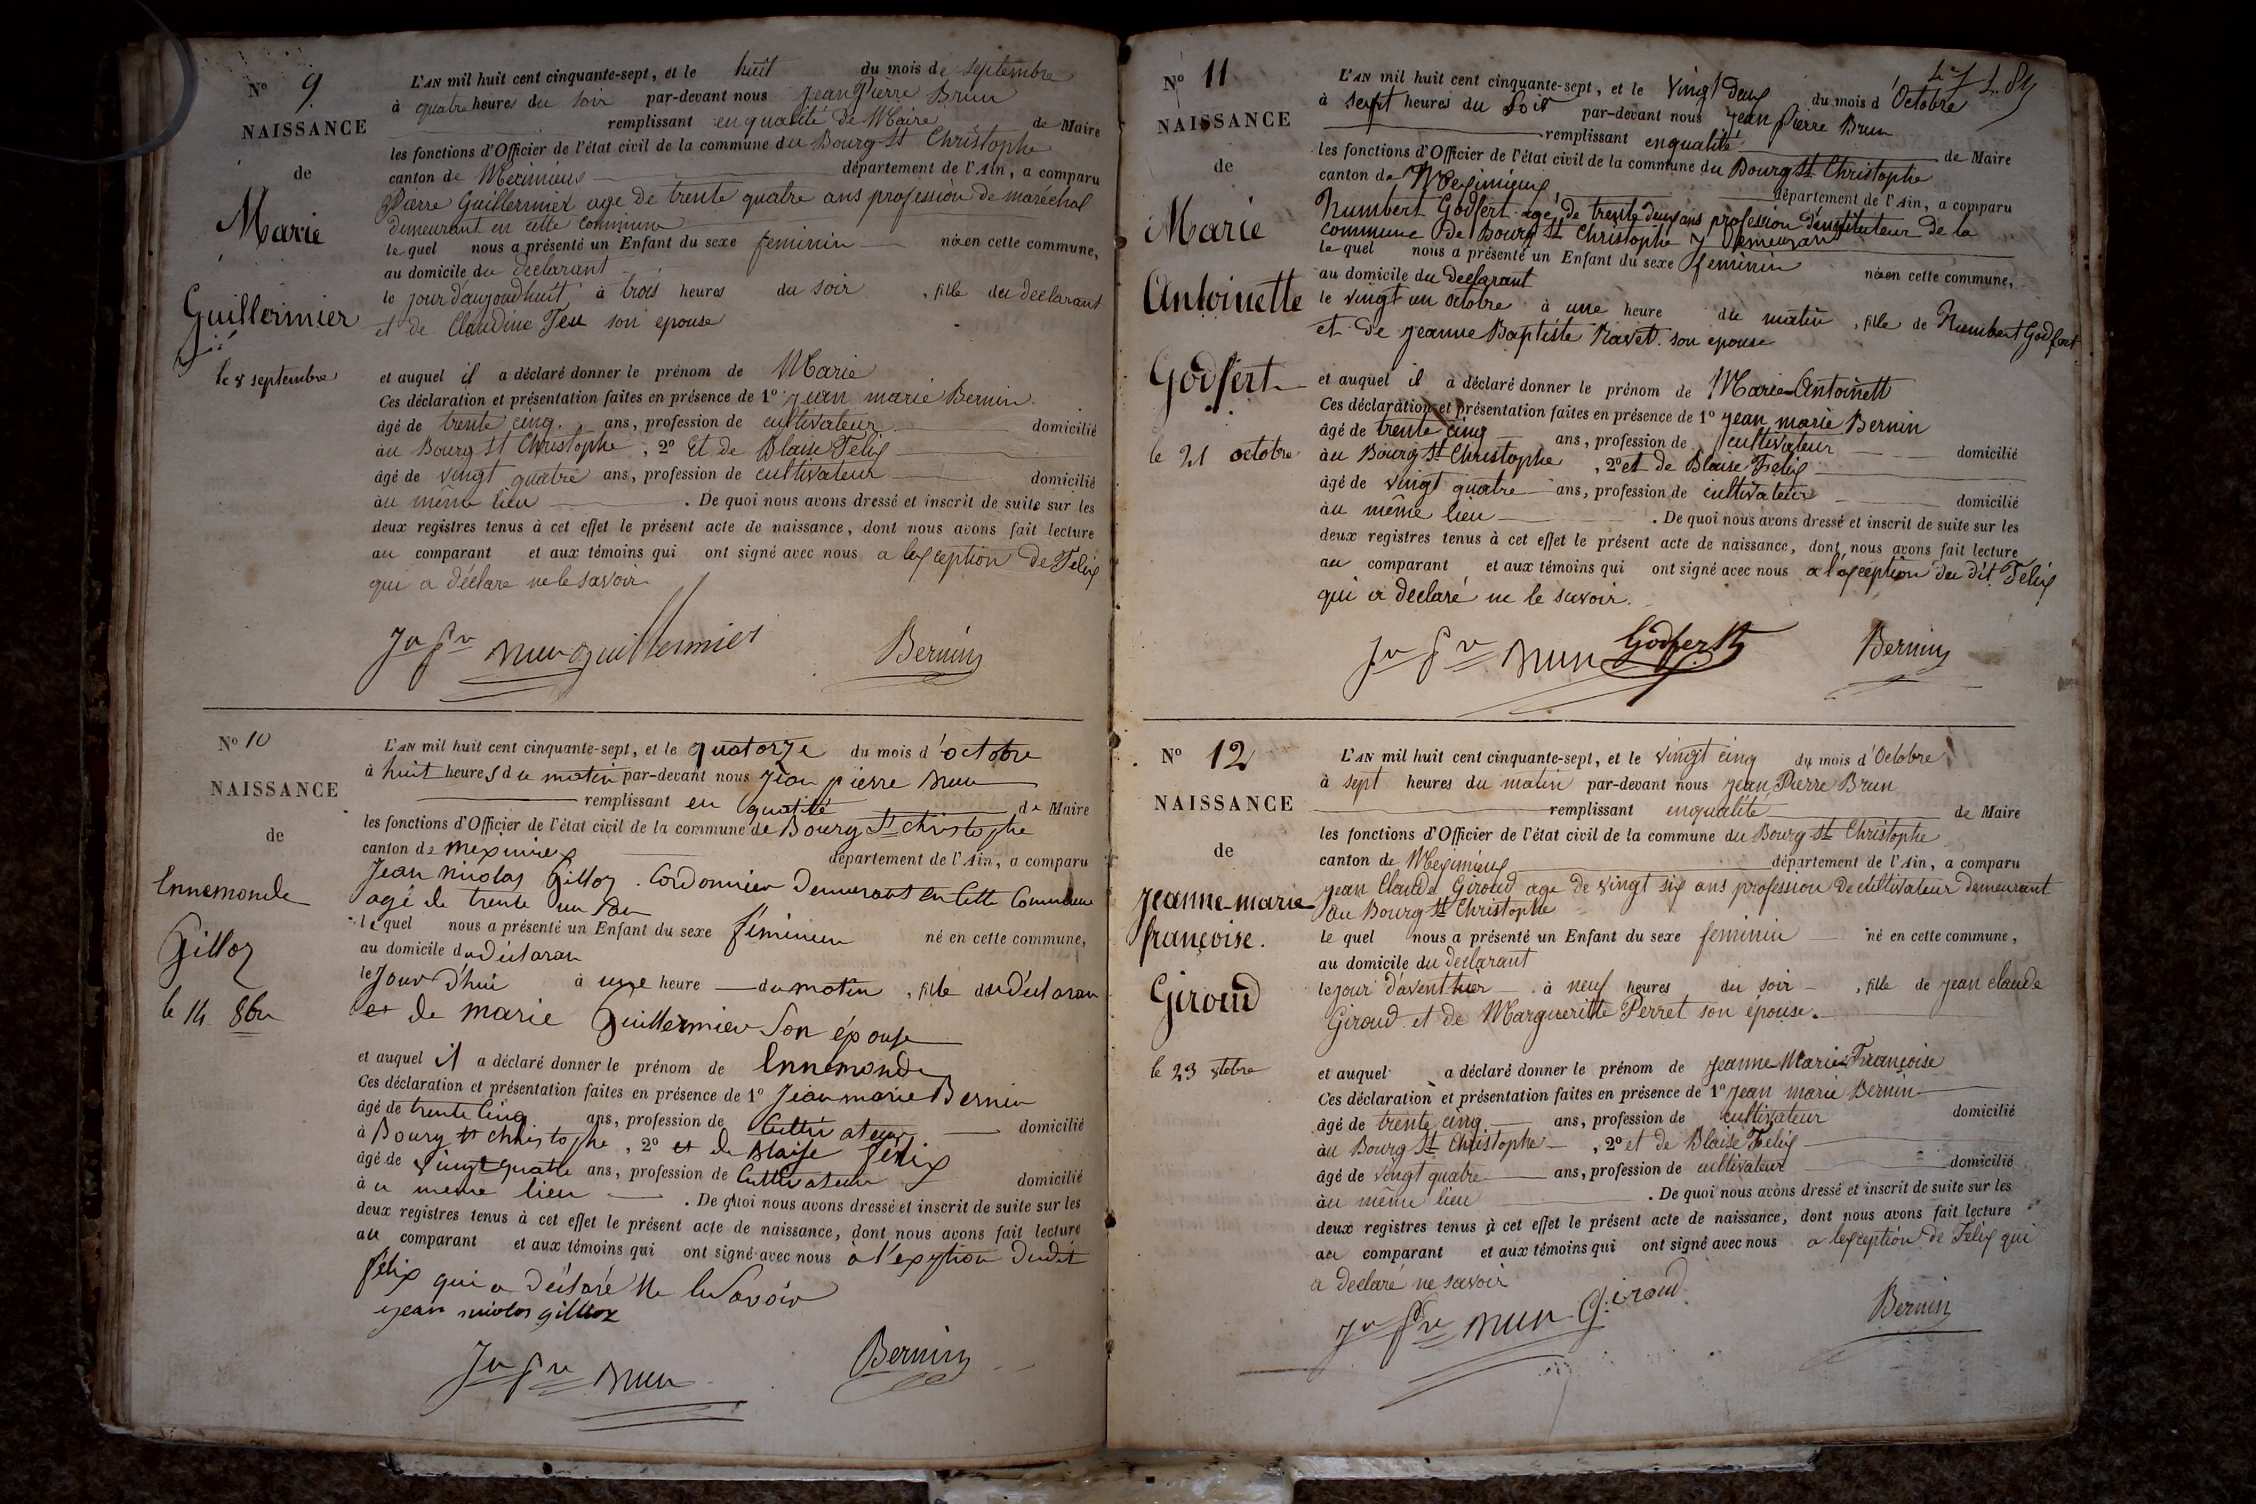 N° 9
NAISSANCE
de
Marie
Guillermier
le 8 septembre
L'AN mil huit cent cinquante-sept, et le huit du mois de septembre
à quatre heures du soir par-devant nous jean pierre Brun
remplissant en qualité de Maire de Maire
les fonctions d'Officier de l'état civil de la commune du Bourg St Christophe
canton de Meximieux département de l'Ain, a comparu
Pierre Guillermier age de trente quatre ans profession de maréchal
demeurant en cette commune
le quel nous a présenté un Enfant du sexe feminin né en cette commune,
au domicile du declarant
le jour d'aujoudhuit à trois heures du soir, fille du declarant
et de Claudine Feu son epouse
et auquel il a déclaré donner le prénom de Marie
Ces déclaration et présentation faites en présence de 1° jean marie Bernin
âgé de trente cinq ans, profession de cultivateur domicilié
au Bourg St Christophe, 2° Et de Blaise Felix
âgé de vingt quatre ans, profession de cultivateur domicilié
au même lieu. De quoi nous avons dressé et inscrit de suite sur les
deux registres tenus à cet effet le présent acte de naissance, dont nous avons fait lecture
au comparant et aux témoins qui ont signé avec nous a lexception de Félix
qui a déclare ne le savoir
Jn Pre Brun Guillermier Bernin
N° 10
NAISSANCE
de
Ennemonde
Gilloz
le 14 8bre
L'AN mil huit cent cinquante-sept, et le quatorze du mois d'octobre
à huit heures du matin par-devant nous jean pierre Brun
remplissant en qualité de Maire
les fonctions d'Officier de l'état civil de la commune de Bourg St christophe
canton de meximieux département de l'Ain, a comparu
Jean nicolas Gilloz Cordonnier demeurant en Cette Commune
agé de trente un an
le quel nous a présenté un Enfant du sexe féminin né en cette commune,
au domicile du déclaran
le Jour d'hui à une heure du matin, fille du déclaran
et de marie Guillermier Son épouse
et auquel il a déclaré donner le prénom de Ennemonde
Ces déclaration et présentation faites en présence de 1° Jean marie Bernin
âgé de trente cinq ans, profession de Cultivateur domicilié
à Bourg St christophe, 2° et de Blaise félix
âgé de vingt quatre ans, profession de Cultivateur domicilié
au meme lieu. De quoi nous avons dressé et inscrit de suite sur les
deux registres tenus à cet effet le présent acte de naissance, dont nous avons fait lecture
au comparant et aux témoins qui ont signé avec nous a l'exeption dudit
félix qui a déclaré Ne le Savoir
jean nicolas gilloz
Jn Pre Brun Bernin
N° 11
NAISSANCE
de
Marie
Antoinette
Godfert
le 21 octobre
L'AN mil huit cent cinquante-sept, et le vingt deux du mois d'Octobre
à sept heures du Soir par-devant nous jean pierre Brun
remplissant enqualité de Maire
les fonctions d'Officier de l'état civil de la commune du Bourg St Christophe
canton de Meximieux département de l'Ain, a comparu
Humbert Godfert agé de trente deux ans profession d'instituteur de la
commune de Bourg St Christophe y demeurant
le quel nous a présenté un Enfant du sexe feminin né en cette commune,
au domicile du declarant
le vingt un octobre à une heure du matin, fille de Humbert Godfert
et de jeanne Baptiste Navet son epouse
et auquel il a déclaré donner le prénom de Marie Antoinett
Ces déclaration et présentation faites en présence de 1° jean marie Bernin
âgé de trente cinq ans, profession de cultivateur domicilié
au Bourg St Christophe, 2° et de Blaise Félix
âgé de vingt quatre ans, profession de cultivateur domicilié
au même lieu. De quoi nous avons dressé et inscrit de suite sur les
deux registres tenus à cet effet le présent acte de naissance, dont nous avons fait lecture
au comparant et aux témoins qui ont signé avec nous a l'exception du dit Félix
qui a declaré ne le savoir.
Jn Pre Brun Godfert Bernin
N° 12
NAISSANCE
de
jeanne-marie
françoise.
Giroud
le 23 octobre
L'AN mil huit cent cinquante-sept, et le vingt cinq du mois d'Octobre
à sept heures du matin par-devant nous jean Pierre Brun
remplissant enqualité de Maire
les fonctions d'Officier de l'état civil de la commune du Bourg St Christophe
canton de Meximieux département de l'Ain, a comparu
jean Claude Giroud age de vingt six ans profession de cultivateur demeurant
au Bourg St Christophe
le quel nous a présenté un Enfant du sexe feminin né en cette commune,
au domicile du declarant
le jour d'avent hier à neuf heures du soir, fille de jean claude
Giroud et de Margueritte Perret son épouse.
et auquel a déclaré donner le prénom de jeanne Marie Françoise
Ces déclaration et présentation faites en présence de 1° jean marie Bernin
âgé de trente cinq ans, profession de cultivateur domicilié
au Bourg St Christophe, 2° et de Blaise Félix
âgé de vingt quatre ans, profession de cultivateur domicilié
au même lieu. De quoi nous avons dressé et inscrit de suite sur les
deux registres tenus à cet effet le présent acte de naissance, dont nous avons fait lecture
au comparant et aux témoins qui ont signé avec nous a lexception de Félix qui
a declaré ne savoir
Jn Pre Brun Giroud Bernin